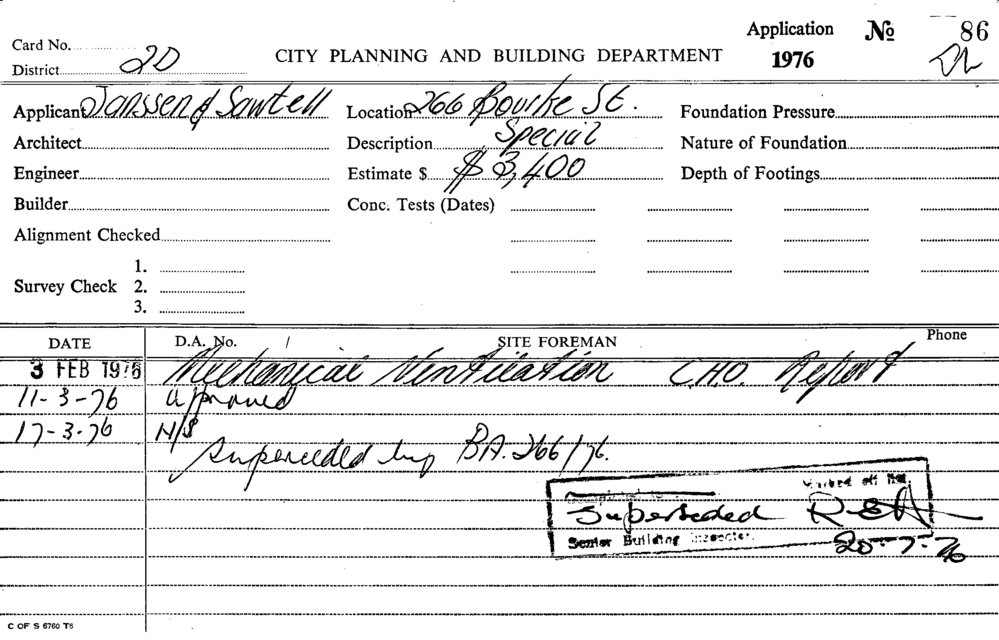 Card No.
District 2D
CITY PLANNING AND BUILDING DEPARTMENT
Application 1976
No 86
Applicant Janssen & Sawtell
Location 266 Bourke St.
Foundation Pressure
Architect
Description Special
Nature of Foundation
Engineer
Estimate $ $ 3,400
Depth of Footings
Builder
Conc. Tests (Dates)
Alignment Checked
Survey Check 1.
2.
3.
DATE
D.A. No. /
SITE FOREMAN
Phone
3 FEB 1976 Mechanical Ventilation C.H.O. Report
11-3-76 Approved
17-3-76 N/S
Superceded by BA. 266/76.
Marked off
Superseded
Senior Building Inspector.
20-7-76
C OF S 6760 T6